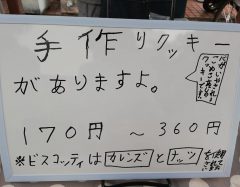 手作りクッキー
がありますよ。
170円 ～ 360円
※ビスコッティはカレンズとナッツ